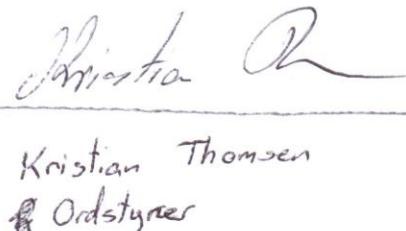 Kristian
Kristian Thomsen
Ordstyrer